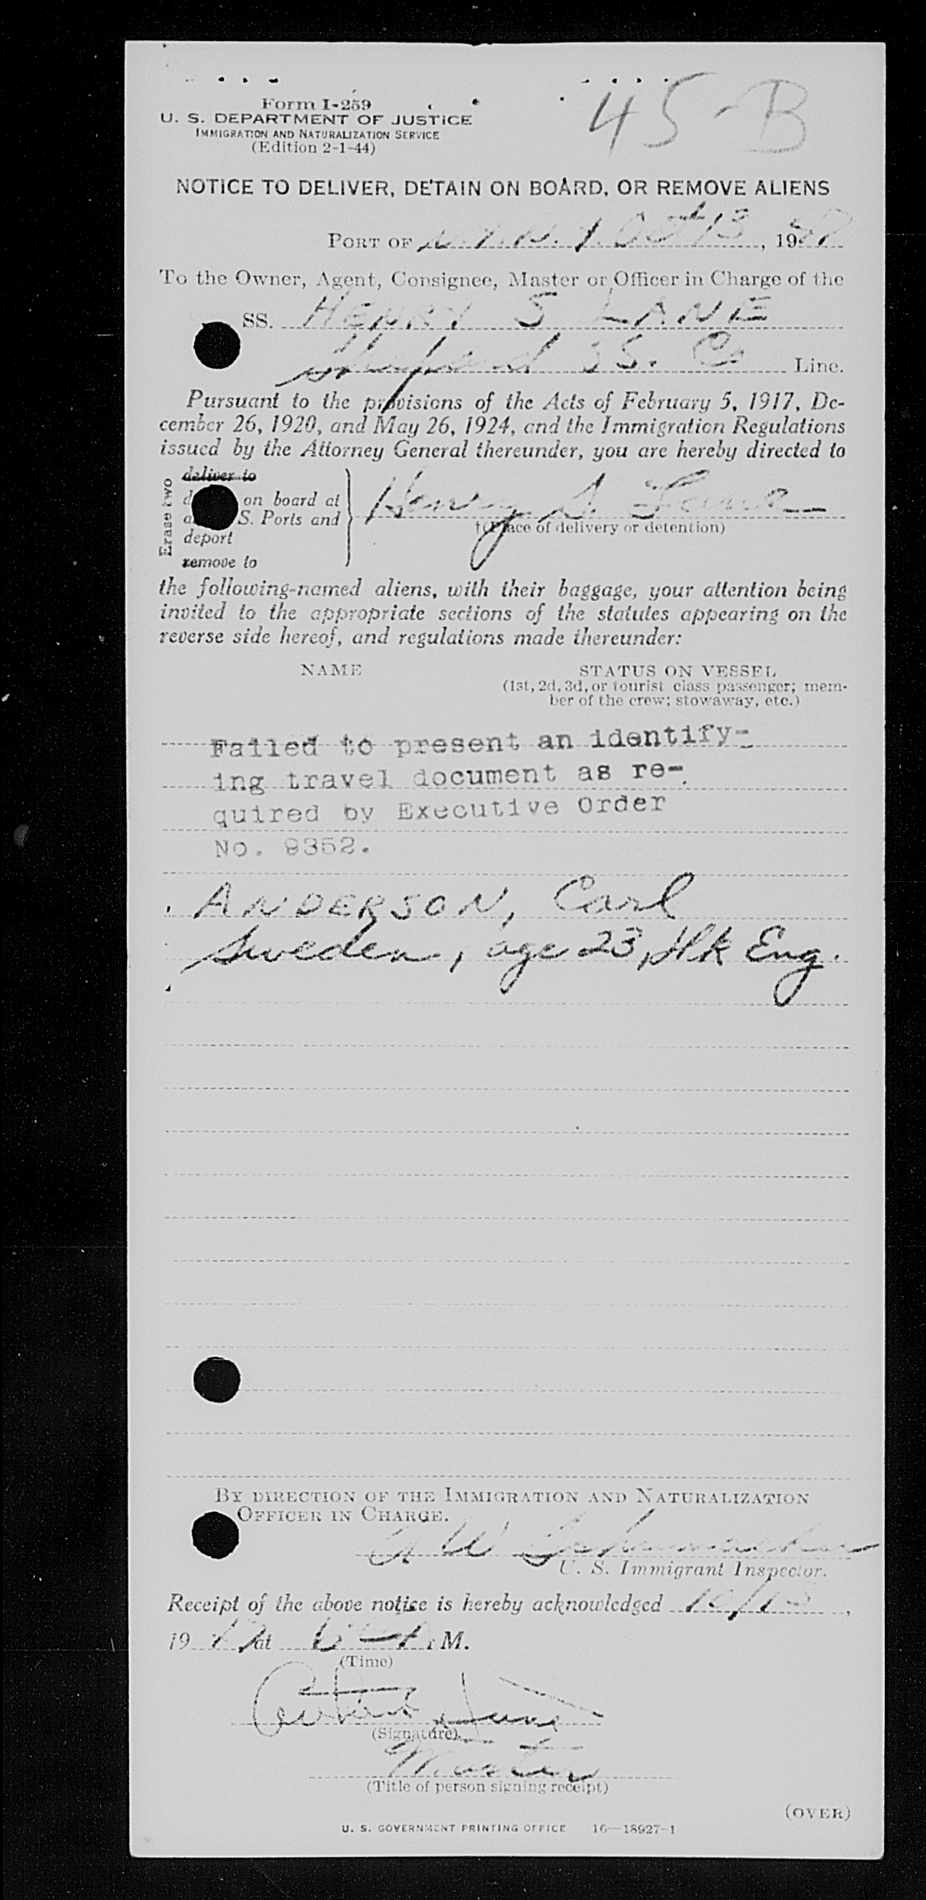 45-B
Form I-259
U. S. DEPARTMENT OF JUSTICE
IMMIGRATION AND NATURALIZATION SERVICE
(Edition 2-1-44)
NOTICE TO DELIVER, DETAIN ON BOARD, OR REMOVE ALIENS
PORT OF N.Y. N.Y. Oct 13, 19
To the Owner, Agent, Consignee, Master or Officer in Charge of the
SS. HENRY S LANE
Shepard SS. Co Line.
Pursuant to the provisions of the Acts of February 5, 1917, De-
cember 26, 1920, and May 26, 1924, and the Immigration Regulations
issued by the Attorney General thereunder, you are hereby directed to
Erase two
deliver to
on board at
S. Ports and
deport
remove to
Henry S. Lane
†(Place of delivery or detention)
the following-named aliens, with their baggage, your attention being
invited to the appropriate sections of the statutes appearing on the
reverse side hereof, and regulations made thereunder:
NAME STATUS ON VESSEL
(1st, 2d, 3d, or tourist class passenger; mem-
ber of the crew; stowaway, etc.)
Failed to present an identify-
ing travel document as re-
quired by Executive Order
No. 9352.
ANDERSON, Carl
Sweden, age 23, Eng.
BY DIRECTION OF THE IMMIGRATION AND NATURALIZATION
OFFICER IN CHARGE.
A W Schumacher
U. S. Immigrant Inspector.
Receipt of the above notice is hereby acknowledged 10/13,
19 at M.
(Time)
(Signature)
Master
(Title of person signing receipt)
(OVER)
U. S. GOVERNMENT PRINTING OFFICE 16—18927-1